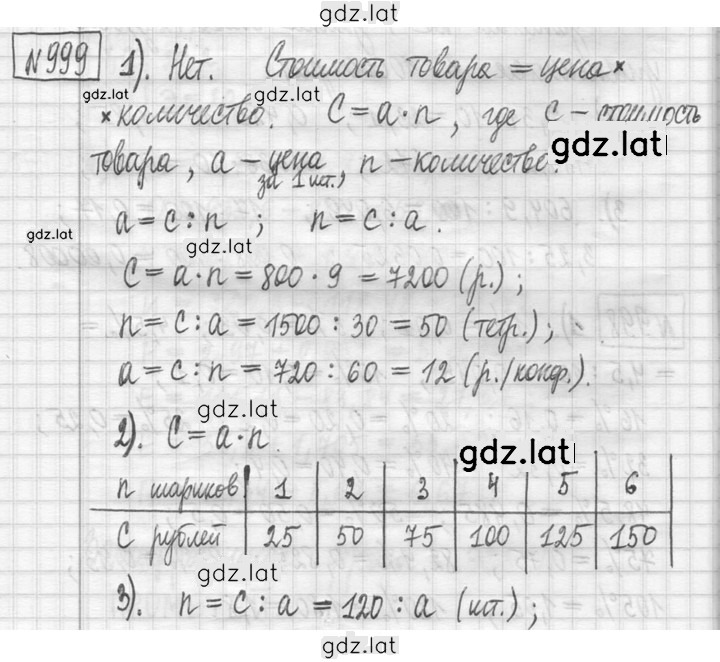 gdz.lat
№999 1). Нет. Стоимость товара = цена ×
gdz.lat gdz.lat
× количество. C = a · n, где C – стоимость
gdz.lat
товара, a – цена за 1 шт., n – количество.
a = C : n ; n = C : a.
gdz.lat gdz.lat
C = a · n = 800 · 9 = 7200 (р.) ;
n = C : a = 1500 : 30 = 50 (тетр.) ;
a = C : n = 720 : 60 = 12 (р./конф.).
gdz.lat
2). C = a · n
gdz.lat
n шариков 1 2 3 4 5 6
C рублей 25 50 75 100 125 150
gdz.lat
3). n = C : a = 120 : a (шт.) ;
gdz.lat